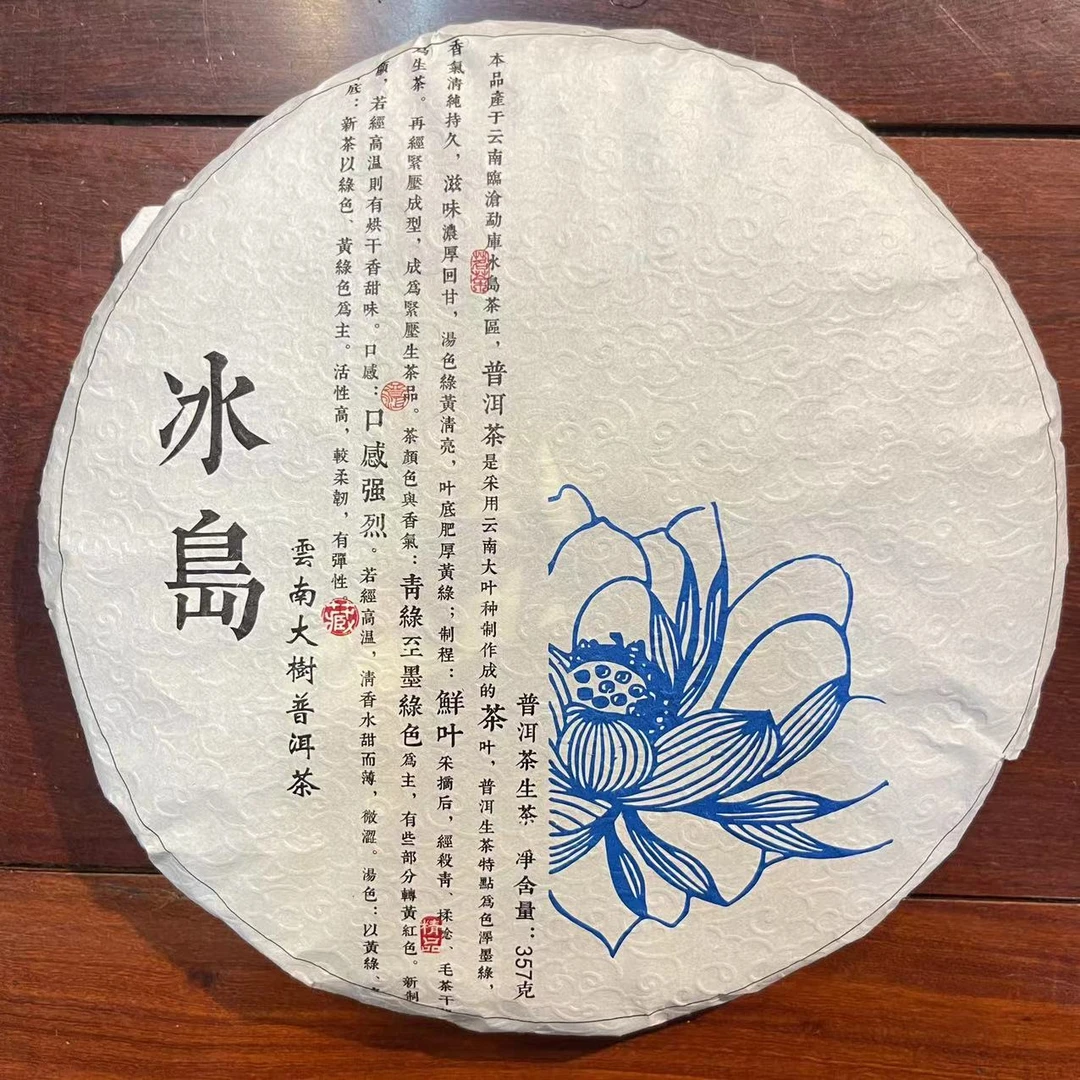 普洱茶生茶 凈含量：357克
本品產于云南臨滄勐庫冰島茶區，普洱茶是采用云南大叶种制作成的茶叶，普洱生茶特點爲色澤墨綠，
香氣清純持久，滋味濃厚回甘，湯色綠黃清亮，叶底肥厚黃綠；制程：鮮叶采摘后，經殺青、揉捻、毛茶干
爲生茶。再經緊壓成型，成爲緊壓生茶品。茶顏色與香氣：青綠至墨綠色爲主，有些部分轉黃紅色。新制
，若經高温則有烘干香甜味。口感：口感强烈。若經高温，清香水甜而薄，微澀。湯色：以黃綠、
底：新茶以綠色、黃綠色爲主。活性高，較柔韌，有彈性。
藏
精品
雲南大樹普洱茶
冰島